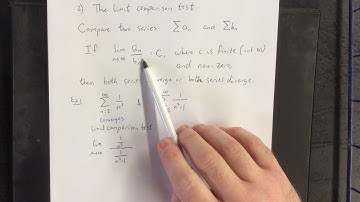 2) The limit comparison test
Compare two series ∑aₙ and ∑bₙ
If lim n→∞ aₙ/bₙ = C, where c is finite (not ∞)
and non-zero,
then both series converge or both series diverge.
∑ n=2 ∞ 1/n² & 1/(n²-1)
converges
Limit comparison test
lim n→∞ (1/n²)/(1/(n²-1))